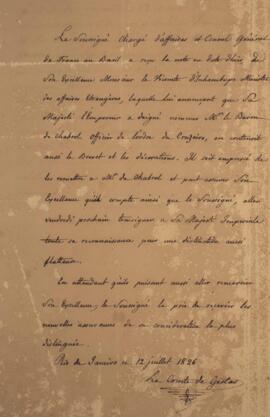 Le Soussigné Chargé d'affaires et Consul Général
de France au Brésil a reçu la note en date d'hier de
Son Excellence Monsieur le Vicomte d'Inhambupe Ministre
des affaires étrangères, laquelle lui annonçant que Sa
Majesté l'Empereur a daigné nommer Mr. le Baron
de Chabrol officier de l'ordre du Cruzeiro, en contenait
aussi le Brevet et les décorations. Il s'est empressé de
les remettre à Mr. de Chabrol et peut assurer Son
Excellence qu'il compte ainsi que le Soussigné, aller
vendredi prochain témoigner à Sa Majesté Impériale
toute sa reconnaissance pour une distinction aussi
flatteuse.
En attendant qu'ils puissent aussi aller remercier
Son Excellence, le Soussigné la prie de recevoir les
nouvelles assurances de sa considération la plus
distinguée.
Rio de Janeiro ce 12 juillet 1826
Le Comte de Gestas